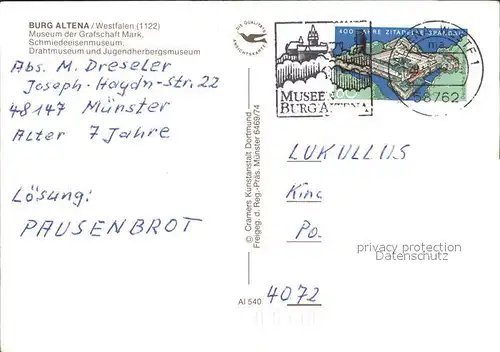 BURG ALTENA / Westfalen (1122)
Museum der Grafschaft Mark,
Schmiedeeisenmuseum,
Drahtmuseum und Jugendherbergsmuseum
Abs. M. Dreseler
Joseph-Haydn-Str. 22
48147 Münster
Alter 7 Jahre
Lösung:
PAUSENBROT
DIE QUALITÄTS
ANSICHTSKARTE
© Cramers Kunstanstalt Dortmund
Freigeg. d. Reg.-Präs. Münster 6469/74
AI 540
MUSEEN
BURG ALTENA
400 JAHRE ZITADELLE SPANDAU
80
58762
LUKULLUS
Kino
Po
4072
privacy protection
Datenschutz